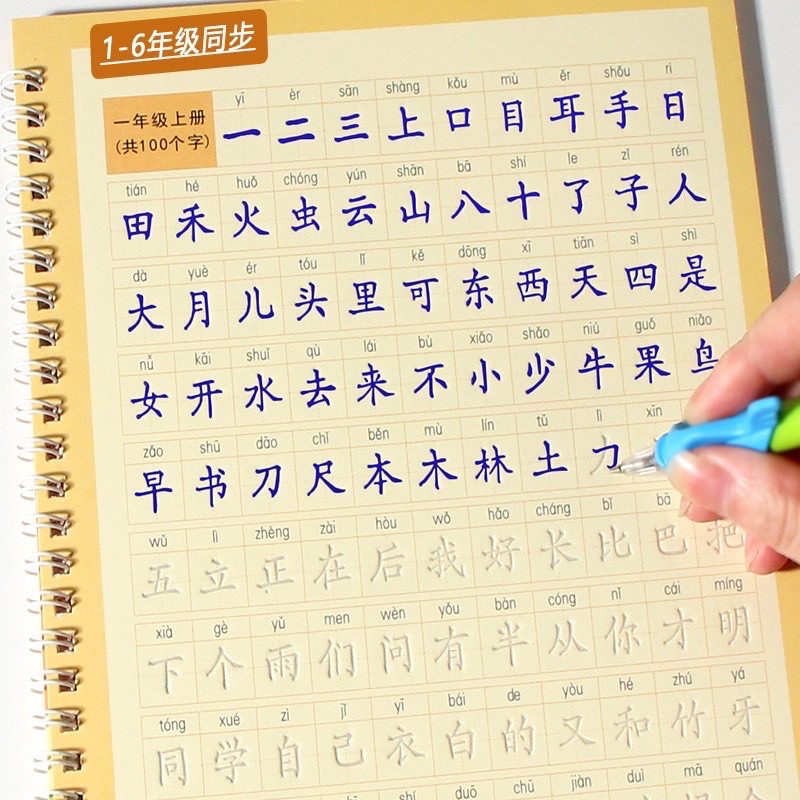 1-6年级同步
yī èr sān shàng kǒu mù ěr shǒu rì
一年级上册
(共100个字)
一 二 三 上 口 目 耳 手 日
tián hé huǒ chóng yún shān bā shí le zǐ rén
田 禾 火 虫 云 山 八 十 了 子 人
dà yuè ér tóu lǐ kě dōng xī tiān sì shì
大 月 儿 头 里 可 东 西 天 四 是
nǚ kāi shuǐ qù lái bù xiǎo shǎo niú guǒ niǎo
女 开 水 去 来 不 小 少 牛 果 鸟
zǎo shū dāo chǐ běn mù lín tǔ lì xīn
早 书 刀 尺 本 木 林 土 力
wǔ lì zhèng zài hòu wǒ hǎo cháng bǐ bā
五 立 正 在 后 我 好 长 比 巴 把
xià gè yǔ men wèn yǒu bàn cóng nǐ cái míng
下 个 雨 们 问 有 半 从 你 才 明
tóng xué zì jǐ yī bái de yòu hé zhú yá
同 学 自 己 衣 白 的 又 和 竹 牙
shí duō chū jiàn duì mā quán